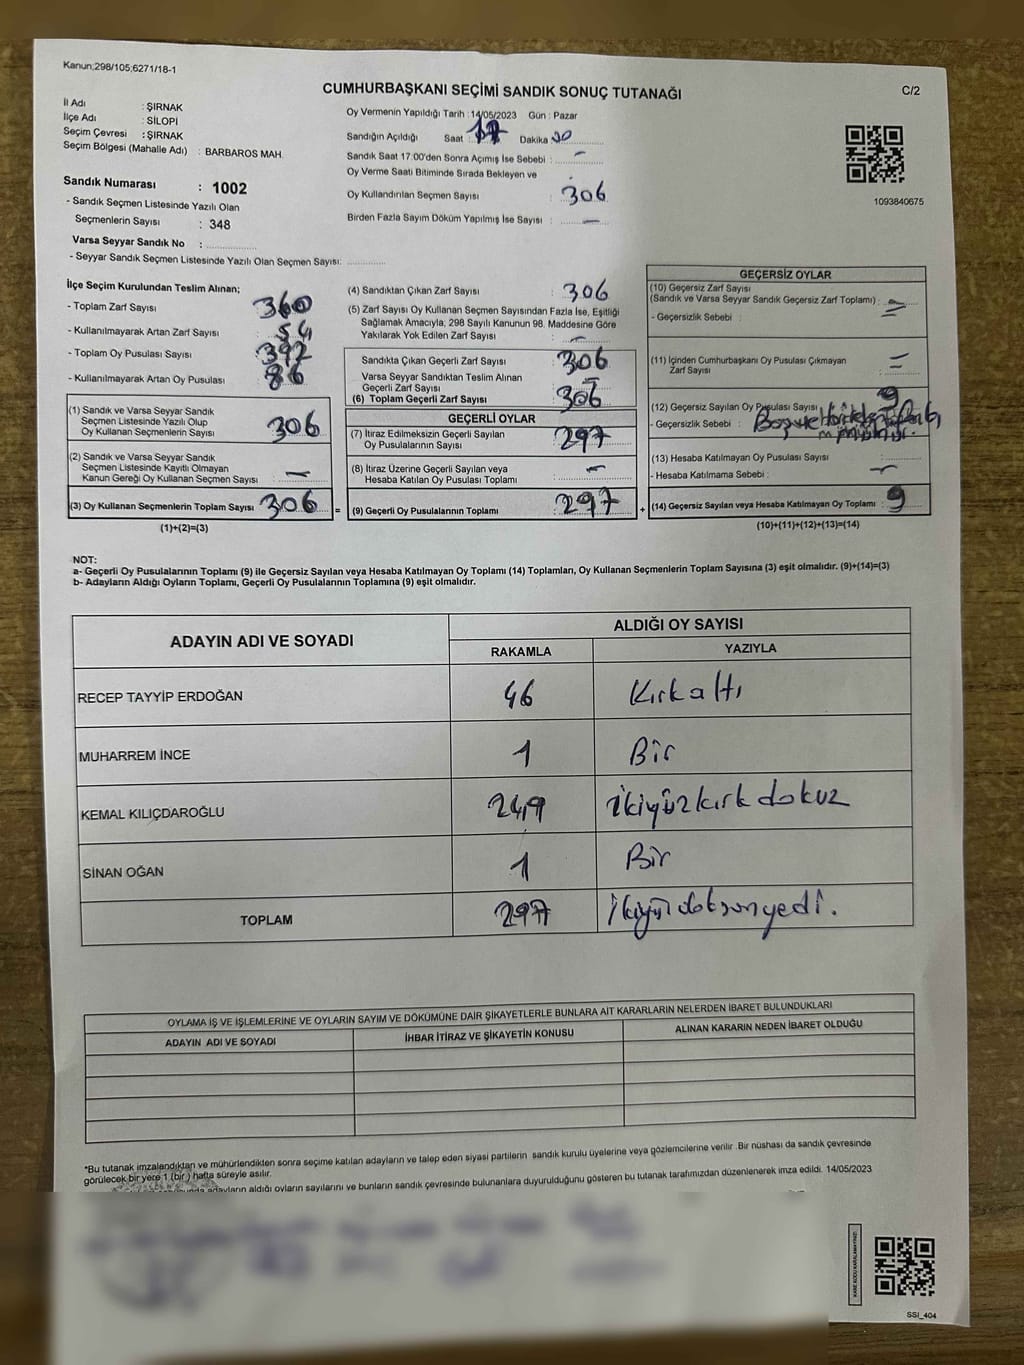 Kanun;298/105;6271/18-1
CUMHURBAŞKANI SEÇİMİ SANDIK SONUÇ TUTANAĞI
C/2
İl Adı : ŞIRNAK
İlçe Adı : SİLOPİ
Seçim Çevresi : ŞIRNAK
Seçim Bölgesi (Mahalle Adı) : BARBAROS MAH.
Sandık Numarası : 1002
- Sandık Seçmen Listesinde Yazılı Olan
Seçmenlerin Sayısı : 348
Varsa Seyyar Sandık No :
- Seyyar Sandık Seçmen Listesinde Yazılı Olan Seçmen Sayısı:
Oy Vermenin Yapıldığı Tarih : 14/05/2023 Gün : Pazar
Sandığın Açıldığı Saat : 17 Dakika 00
Sandık Saat 17:00'den Sonra Açımış İse Sebebi : -
Oy Verme Saati Bitiminde Sırada Bekleyen ve
Oy Kullandırılan Seçmen Sayısı : 306
Birden Fazla Sayım Döküm Yapılmış İse Sayısı : -
1093840675
İlçe Seçim Kurulundan Teslim Alınan;
- Toplam Zarf Sayısı : 360
- Kullanılmayarak Artan Zarf Sayısı : 54
- Toplam Oy Pusulası Sayısı : 392
- Kullanılmayarak Artan Oy Pusulası : 86
(1) Sandık ve Varsa Seyyar Sandık
Seçmen Listesinde Yazılı Olup
Oy Kullanan Seçmenlerin Sayısı : 306
(2) Sandık ve Varsa Seyyar Sandık
Seçmen Listesinde Kayıtlı Olmayan
Kanun Gereği Oy Kullanan Seçmen Sayısı : -
(3) Oy Kullanan Seçmenlerin Toplam Sayısı : 306 =
(1)+(2)=(3)
(4) Sandıktan Çıkan Zarf Sayısı : 306
(5) Zarf Sayısı Oy Kullanan Seçmen Sayısından Fazla İse, Eşitliği
Sağlamak Amacıyla; 298 Sayılı Kanunun 98. Maddesine Göre
Yakılarak Yok Edilen Zarf Sayısı : -
Sandıkta Çıkan Geçerli Zarf Sayısı : 306
Varsa Seyyar Sandıktan Teslim Alınan
Geçerli Zarf Sayısı : -
(6) Toplam Geçerli Zarf Sayısı : 306
GEÇERLİ OYLAR
(7) İtiraz Edilmeksizin Geçerli Sayılan
Oy Pusulası Sayısı : 297
(8) İtiraz Üzerine Geçerli Sayılan veya
Hesaba Katılan Oy Pusulası Toplamı : -
(9) Geçerli Oy Pusulalarının Toplamı : 297 +
GEÇERSİZ OYLAR
(10) Geçersiz Zarf Sayısı
(Sandık ve Varsa Seyyar Sandık Geçersiz Zarf Toplamı) : =
- Geçersizlik Sebebi :
(11) İçinden Cumhurbaşkanı Oy Pusulası Çıkmayan
Zarf Sayısı : =
(12) Geçersiz Sayılan Oy Pusulası Sayısı : 9
- Geçersizlik Sebebi :
(13) Hesaba Katılmayan Oy Pusulası Sayısı :
- Hesaba Katılmama Sebebi : -
(14) Geçersiz Sayılan veya Hesaba Katılmayan Oy Toplamı : 9
(10)+(11)+(12)+(13)=(14)
NOT:
a- Geçerli Oy Pusulalarının Toplamı (9) ile Geçersiz Sayılan veya Hesaba Katılmayan Oy Toplamı (14) Toplamları, Oy Kullanan Seçmenlerin Toplam Sayısına (3) eşit olmalıdır. (9)+(14)=(3)
b- Adayların Aldığı Oyların Toplamı, Geçerli Oy Pusulalarının Toplamına (9) eşit olmalıdır.
ADAYIN ADI VE SOYADI
ALDIĞI OY SAYISI
RAKAMLA YAZIYLA
RECEP TAYYİP ERDOĞAN 46 Kırkaltı
MUHARREM İNCE 1 Bir
KEMAL KILIÇDAROĞLU 249 ikiyüzkırkdokuz
SİNAN OĞAN 1 Bir
TOPLAM 297 ikiyüzdoksanyedi.
OYLAMA İŞ VE İŞLEMLERİNE VE OYLARIN SAYIM VE DÖKÜMÜNE DAİR ŞİKAYETLERLE BUNLARA AİT KARARLARIN NELERDEN İBARET BULUNDUKLARI
ADAYIN ADI VE SOYADI İHBAR İTİRAZ VE ŞİKAYETİN KONUSU ALINAN KARARIN NEDEN İBARET OLDUĞU
*Bu tutanak imzalandıktan ve mühürlendikten sonra seçime katılan adayların ve talep eden siyasi partilerin sandık kurulu üyelerine veya gözlemcilerine verilir .Bir nüshası da sandık çevresinde
görülecek bir yere 1 (bir) hafta süreyle asılır.
adayların aldığı oyların sayılarını ve bunların sandık çevresinde bulunanlara duyurulduğunu gösteren bu tutanak tarafımızdan düzenlenerek imza edildi. 14/05/2023
SSİ_404